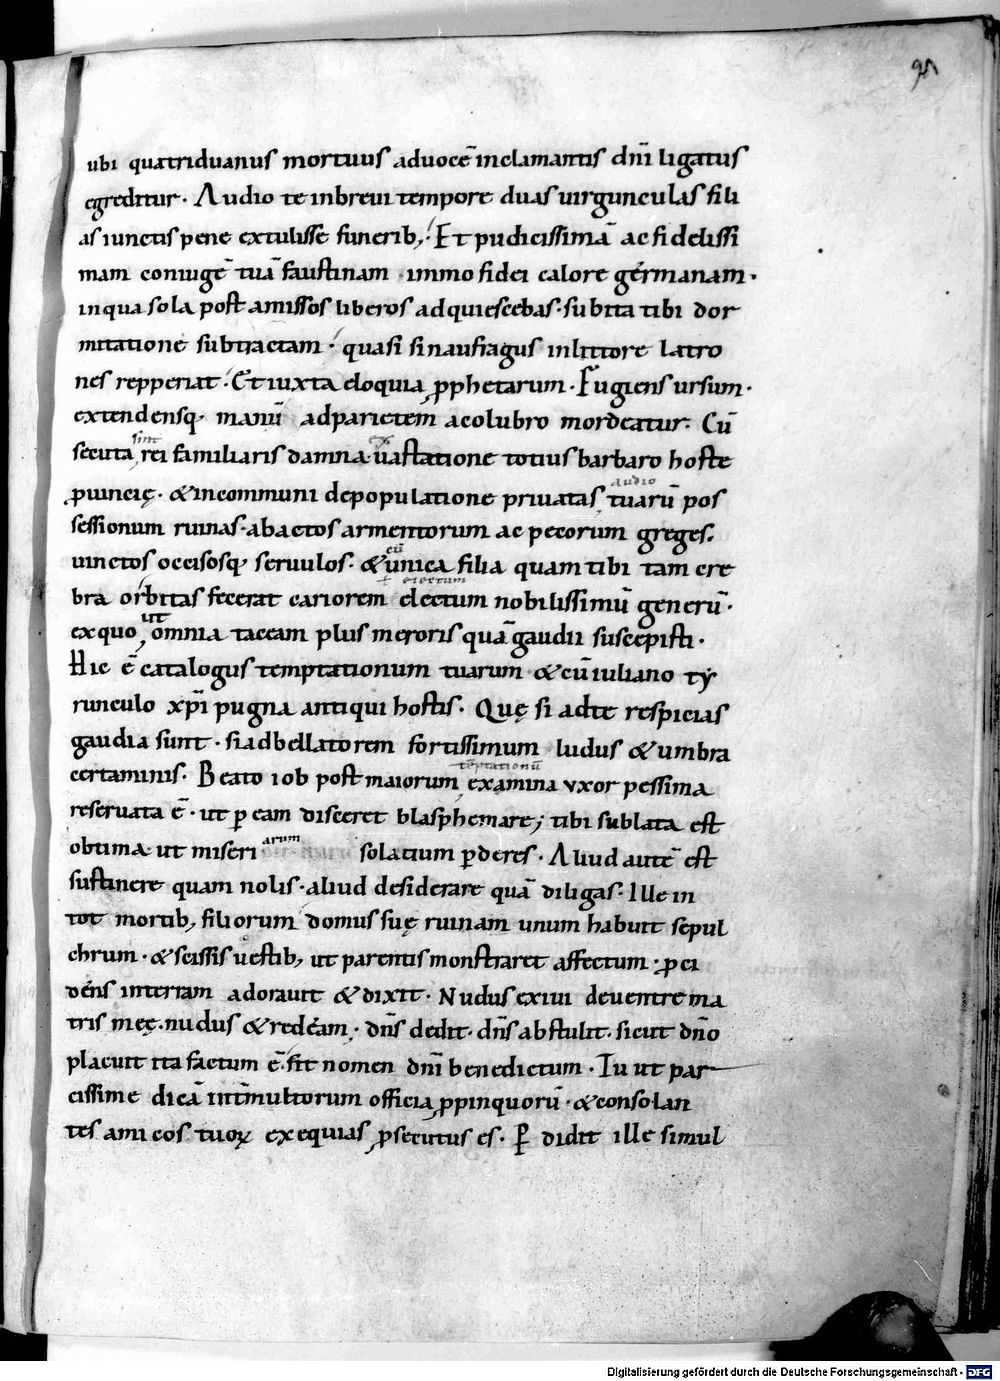 95
ubi quatriduanus mortuus aduocē inclamantis dn̄i ligatus
egreditur. Audio te inbreui tempore duas uirgunculas fili
as iunctis pene extulisse funerib;. Et pudicissimā ac fidelissi
mam coniugē tuā faustinam. immo fidei calore gérmanam.
inqua sola post amissos liberos adquiescebas. subita tibi dor
mitatione subtractam. quasi si naufragus inlittore latro
nes repperiat. Et iuxta eloquia ꝓphetarum. Fugiens ursum.
extendensq; manū adparietem acolubro mordeatur. Cū
secuta sint rei familiaris damna. ex uastatione totius barbaro hoste
ꝓuincię. & incommuni depopulatione priuatas audio tuarū pos
sessionum ruinas. abactos armentorum ac pecorum greges.
uinctos occisosq; seruulos. & cū unica filia quam tibi tam cre
bra orbitas fecerat cariorem + eiectum electum nobilissimū generū.
exquo, ut omnia taceam plus meroris quā gaudii suscepisti.
Hic ē catalogus temptationum tuarum & cū iuliano ty
runculo xp̄i pugna antiqui hostis. Quę si adte respicias
gaudia sunt. si adbellatorem fortissimum ludus & umbra
certaminis. Beato iob post maiorum tēptationū examina vxor pessima
reseruata ē. ut ꝑ eam disceret blasphemare; tibi sublata est
obtima. ut miseriarum solatium ꝑderes. Aliud autē est
sustinere quam nolis. aliud desiderare quā diligas. Ille in
tot mortib; filiorum domus suę ruinam unum habuit sepul
chrum. & scissis uestib; ut parentis monstraret affectum. ꝓci
dens interram adorauit & dixit. Nudus exiui deuentre ma
tris meę. nudus & redeam. dn̄s dedit. dn̄s abstulit. sicut dn̄o
placuit ita factum ē. sit nomen dn̄i benedictum. Tu ut par
cissime dicā int̄ multorum officia ꝓpinquorū. & consolan
tes amicos tuoꝝ exequias ꝓsecutus es. Ꝑdidit ille simul
Digitalisierung gefördert durch die Deutsche Forschungsgemeinschaft - DFG